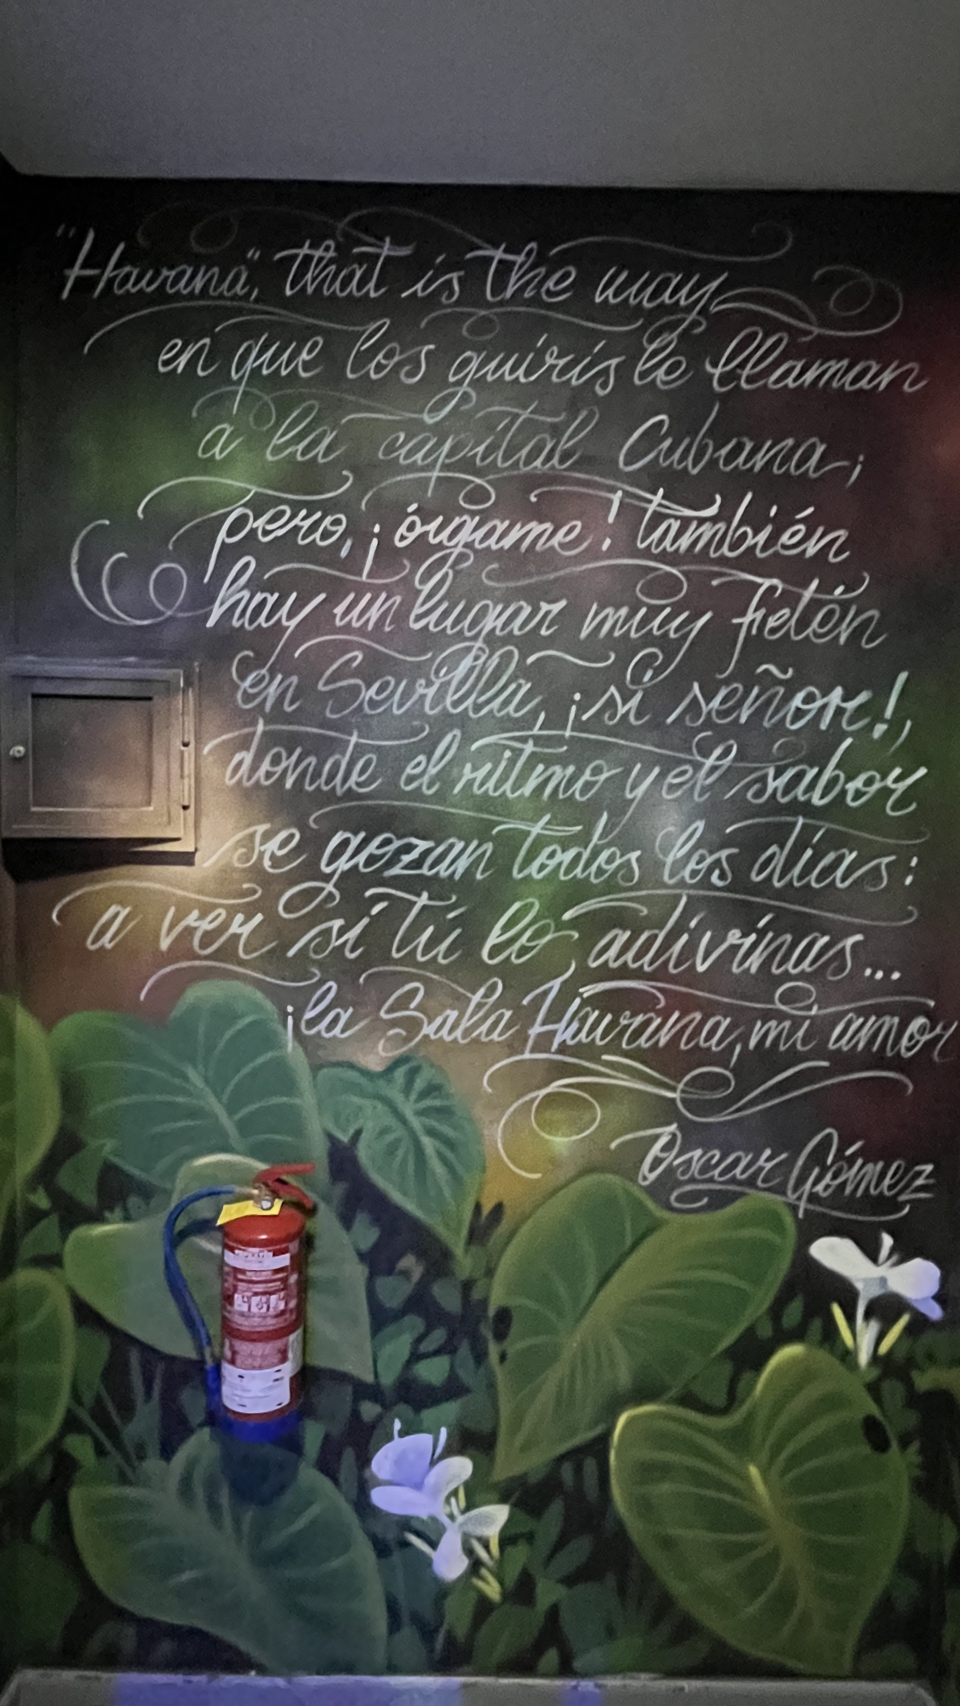 "Havana", that is the way
en que los guiris le llaman
a la capital Cubana;
pero, ¡óigame! también
hay un lugar muy fetén
en Sevilla, ¡si señor!,
donde el ritmo y el sabor
se gozan todos los días:
a ver si tú lo adivinas...
¡la Sala Havana, mi amor
Oscar Gómez